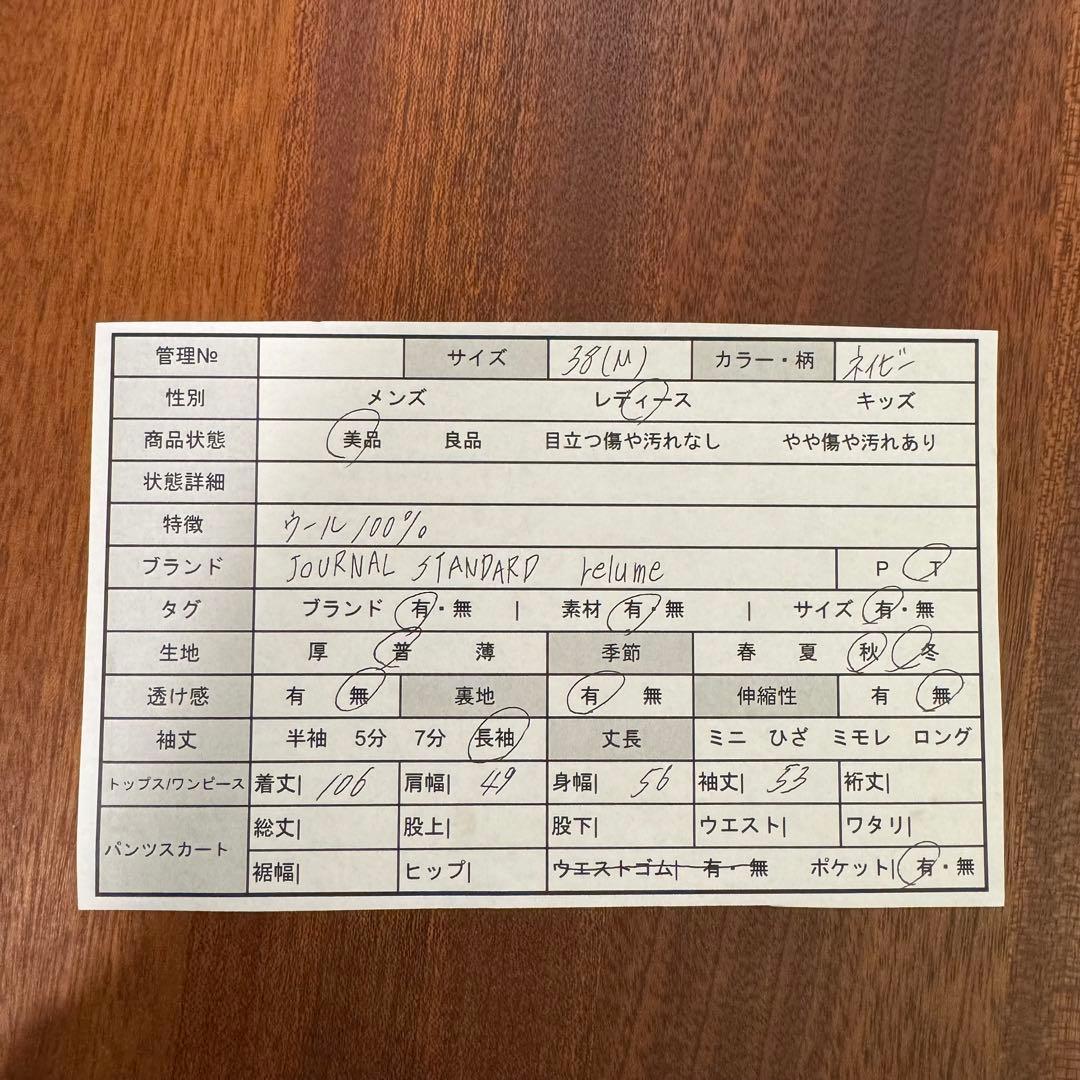 管理№ サイズ 38(M) カラー・柄 ネイビー
性別 メンズ レディース キッズ
商品状態 美品 良品 目立つ傷や汚れなし やや傷や汚れあり
状態詳細
特徴 ウール100%
ブランド JOURNAL STANDARD relume P T
タグ ブランド 有・無 | 素材 有・無 | サイズ 有・無
生地 厚 普 薄 季節 春 夏 秋 冬
透け感 有 無 裏地 有 無 伸縮性 有 無
袖丈 半袖 5分 7分 長袖 丈長 ミニ ひざ ミモレ ロング
トップス/ワンピース 着丈| 106 肩幅| 49 身幅| 56 袖丈| 53 裄丈|
パンツスカート 総丈| 股上| 股下| ウエスト| ワタリ|
裾幅| ヒップ| ウエストゴム| 有・無 ポケット| 有・無